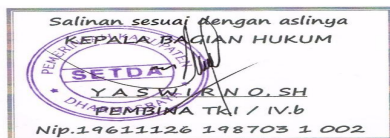 Salinan sesuai dengan aslinya
KEPALA BAGIAN HUKUM
SETDA
YASWIRNO, SH
PEMBINA Tk.I / IV.b
Nip.19611126 198703 1 002